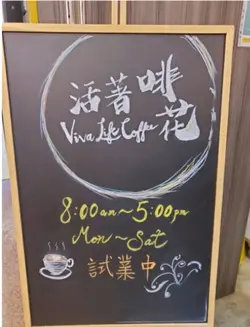 活著啡花
Viva Life Coffee
8:00am～5:00pm
Mon～Sat
試業中